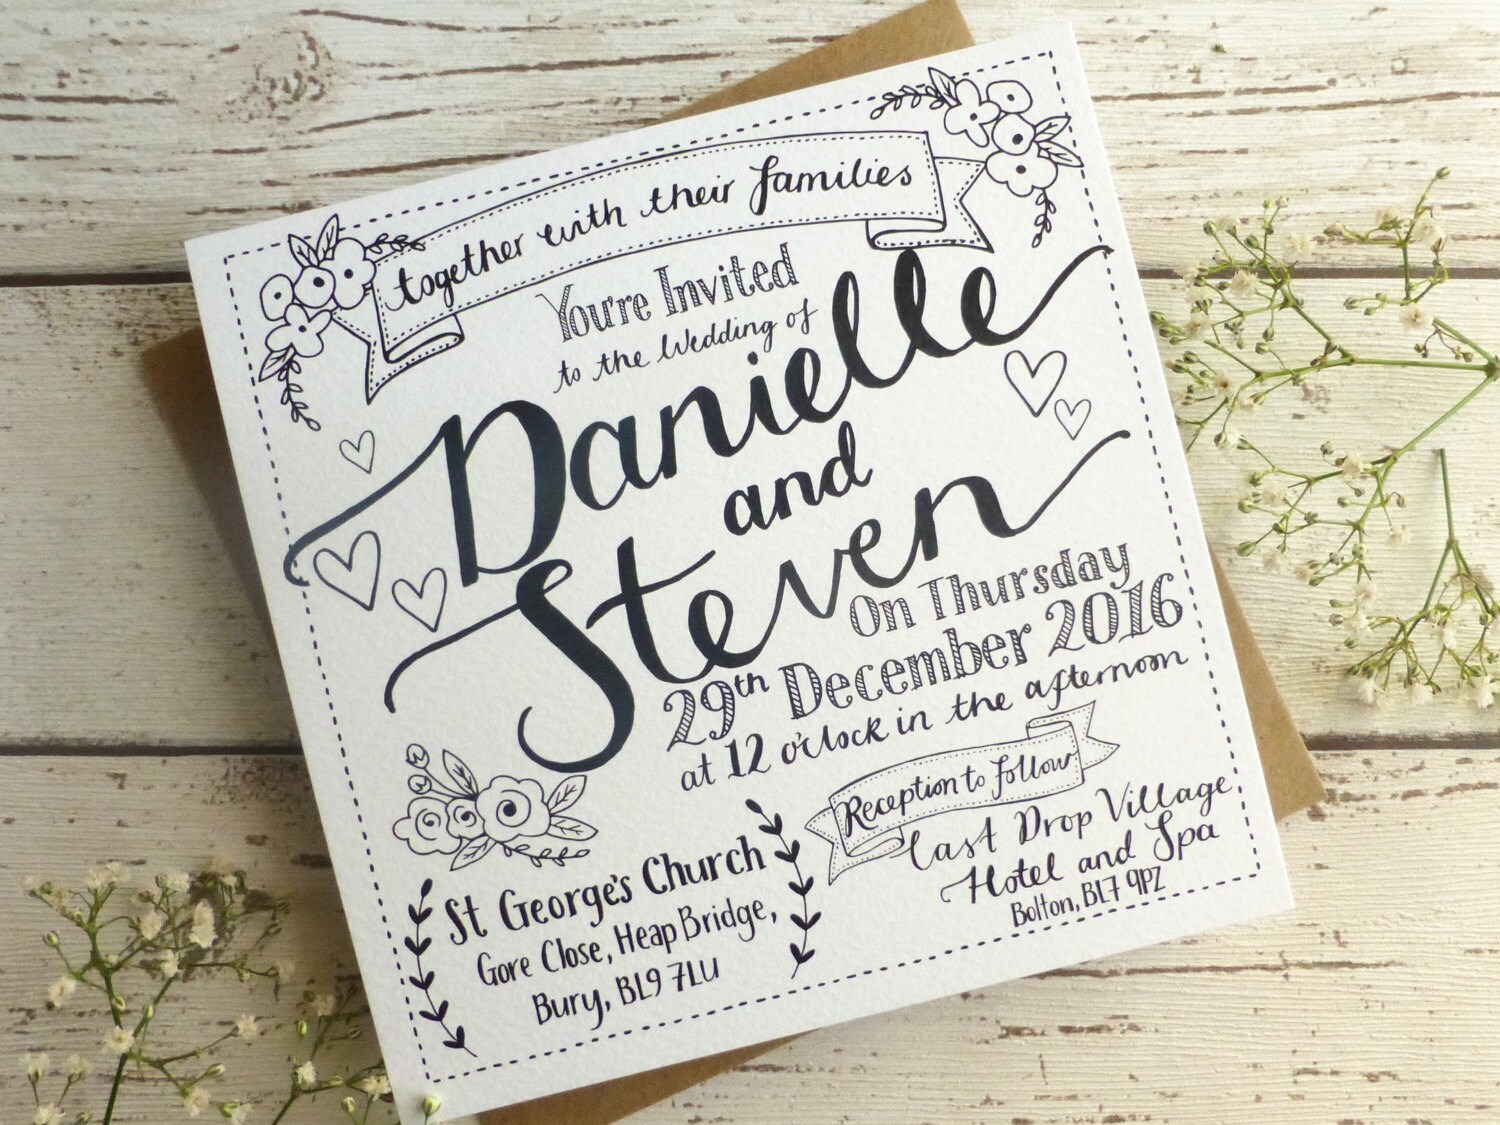 together with their families
You're Invited
to the Wedding of
Danielle
and
Steven
On Thursday
29th December 2016
at 12 o'clock in the afternoon
Reception to follow
Last Drop Village
Hotel and Spa
Bolton, BL7 9PZ
St George's Church
Gore Close, Heap Bridge,
Bury, BL9 7LU